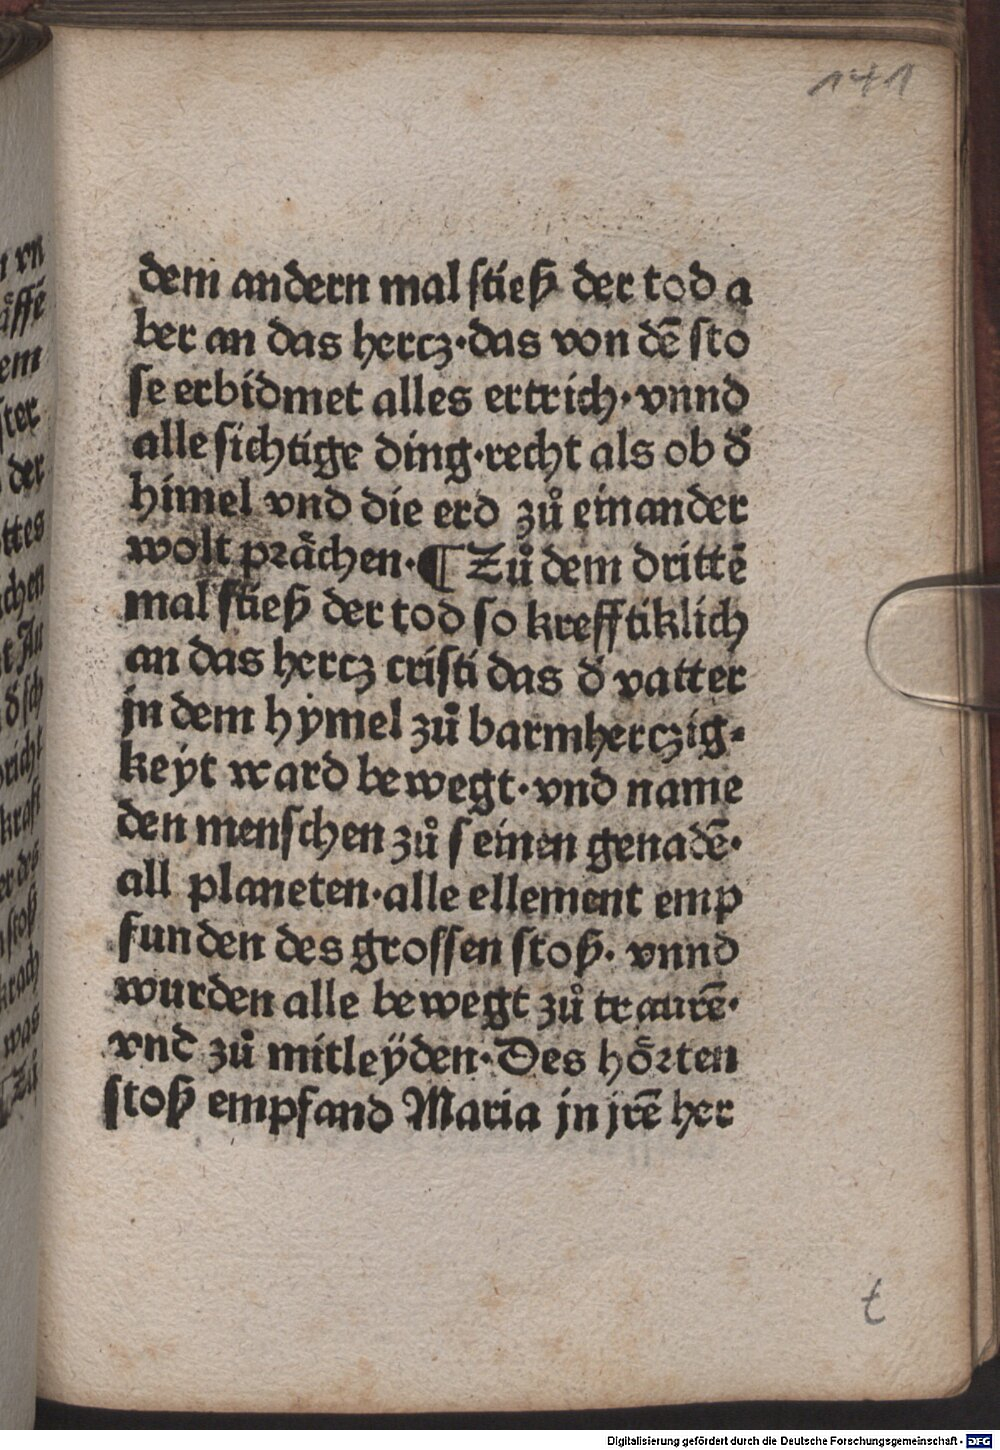 141
dem andern mal ſtieß der tod a
ber an das hercz·das von dē ſto
ſe erbidmet alles ertrich·vnnd
alle ſichtige ding·recht als ob d᷑
himel vnd die erd zů einander
wolt prächen·¶ Zů dem drittē
mal ſtieß der tod ſo krefftiklich
an das hercz criſti das d᷑ vatter
jn dem hymel zů barmherczig⸗
keyt ward bewegt·vnd name
den menſchen zů ſeinen genadē·
all planeten·alle ellement emp
funden des groſſen ſtoß· vnnd
wurden alle bewegt zů traurē·
vnd zů mitleÿden·Des hörten
ſtoß empfand Maria jn jrē her
t
Digitalisierung gefördert durch die Deutsche Forschungsgemeinschaft - DFG